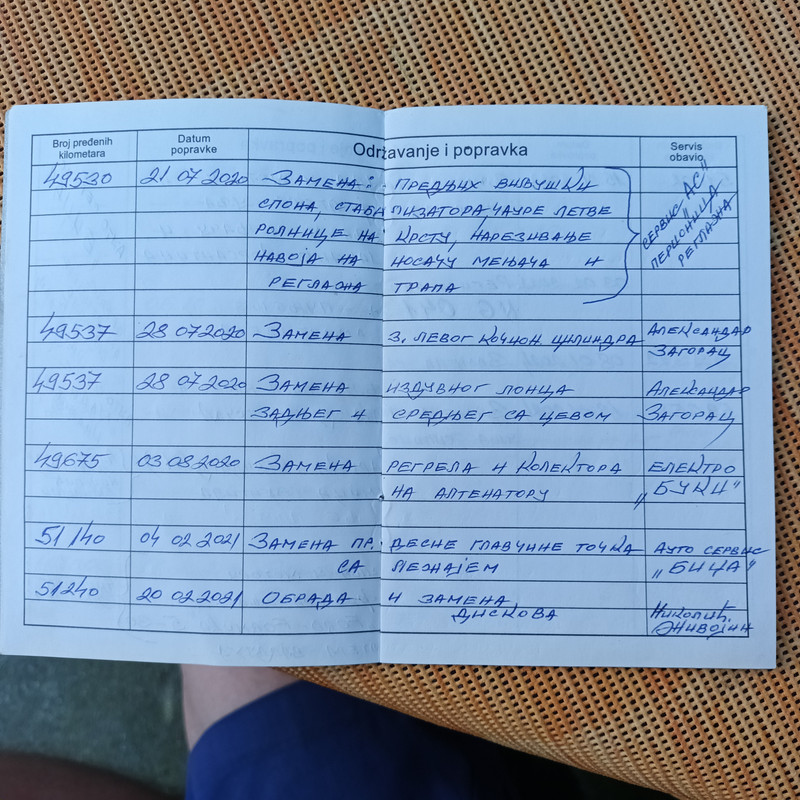 Broj pređenih kilometara Datum popravke Održavanje i popravka Servis obavio
49530 21 07 2020 ЗАМЕНА: ПРЕДЊИХ ВИВУШКИ СЕРВИС АСА
СПОНА, СТАБИЛИЗАТОРА, ЧАУРЕ ЛЕТВЕ ПЕРИОНИЦА
РОЛНИЦЕ НА КРСТУ, НАРЕЗИВАЊЕ РЕГЛАЖА
НАВОЈА НА НОСАЧУ МЕЊАЧА И
РЕГЛАЖА ТРАПА
49537 28 07 2020 ЗАМЕНА З. ЛЕВОГ КОЧИОН ЦИЛИНДРА АЛЕКСАНДАР
ЗАГОРАЦ
49537 28 07 2020 ЗАМЕНА ИЗДУВНОГ ЛОНЦА АЛЕКСАНДАР
ЗАДЊЕГ И СРЕДЊЕГ СА ЦЕВОМ ЗАГОРАЦ
49675 03 08 2020 ЗАМЕНА РЕГРЕЛА И КОЛЕКТОРА ЕЛЕКТРО
НА АЛТЕНАТОРУ „БУКИ"
51140 04 02 2021 ЗАМЕНА ПР. ДЕСНЕ ГЛАВЧИНЕ ТОЧКА АУТО СЕРВИС
СА ЛЕЖАЈЕМ „БИЦА"
51240 20 02 2021 ОБРАДА И ЗАМЕНА НИКОЛИЋ
ДИСКОВА ЖИВОЈИН